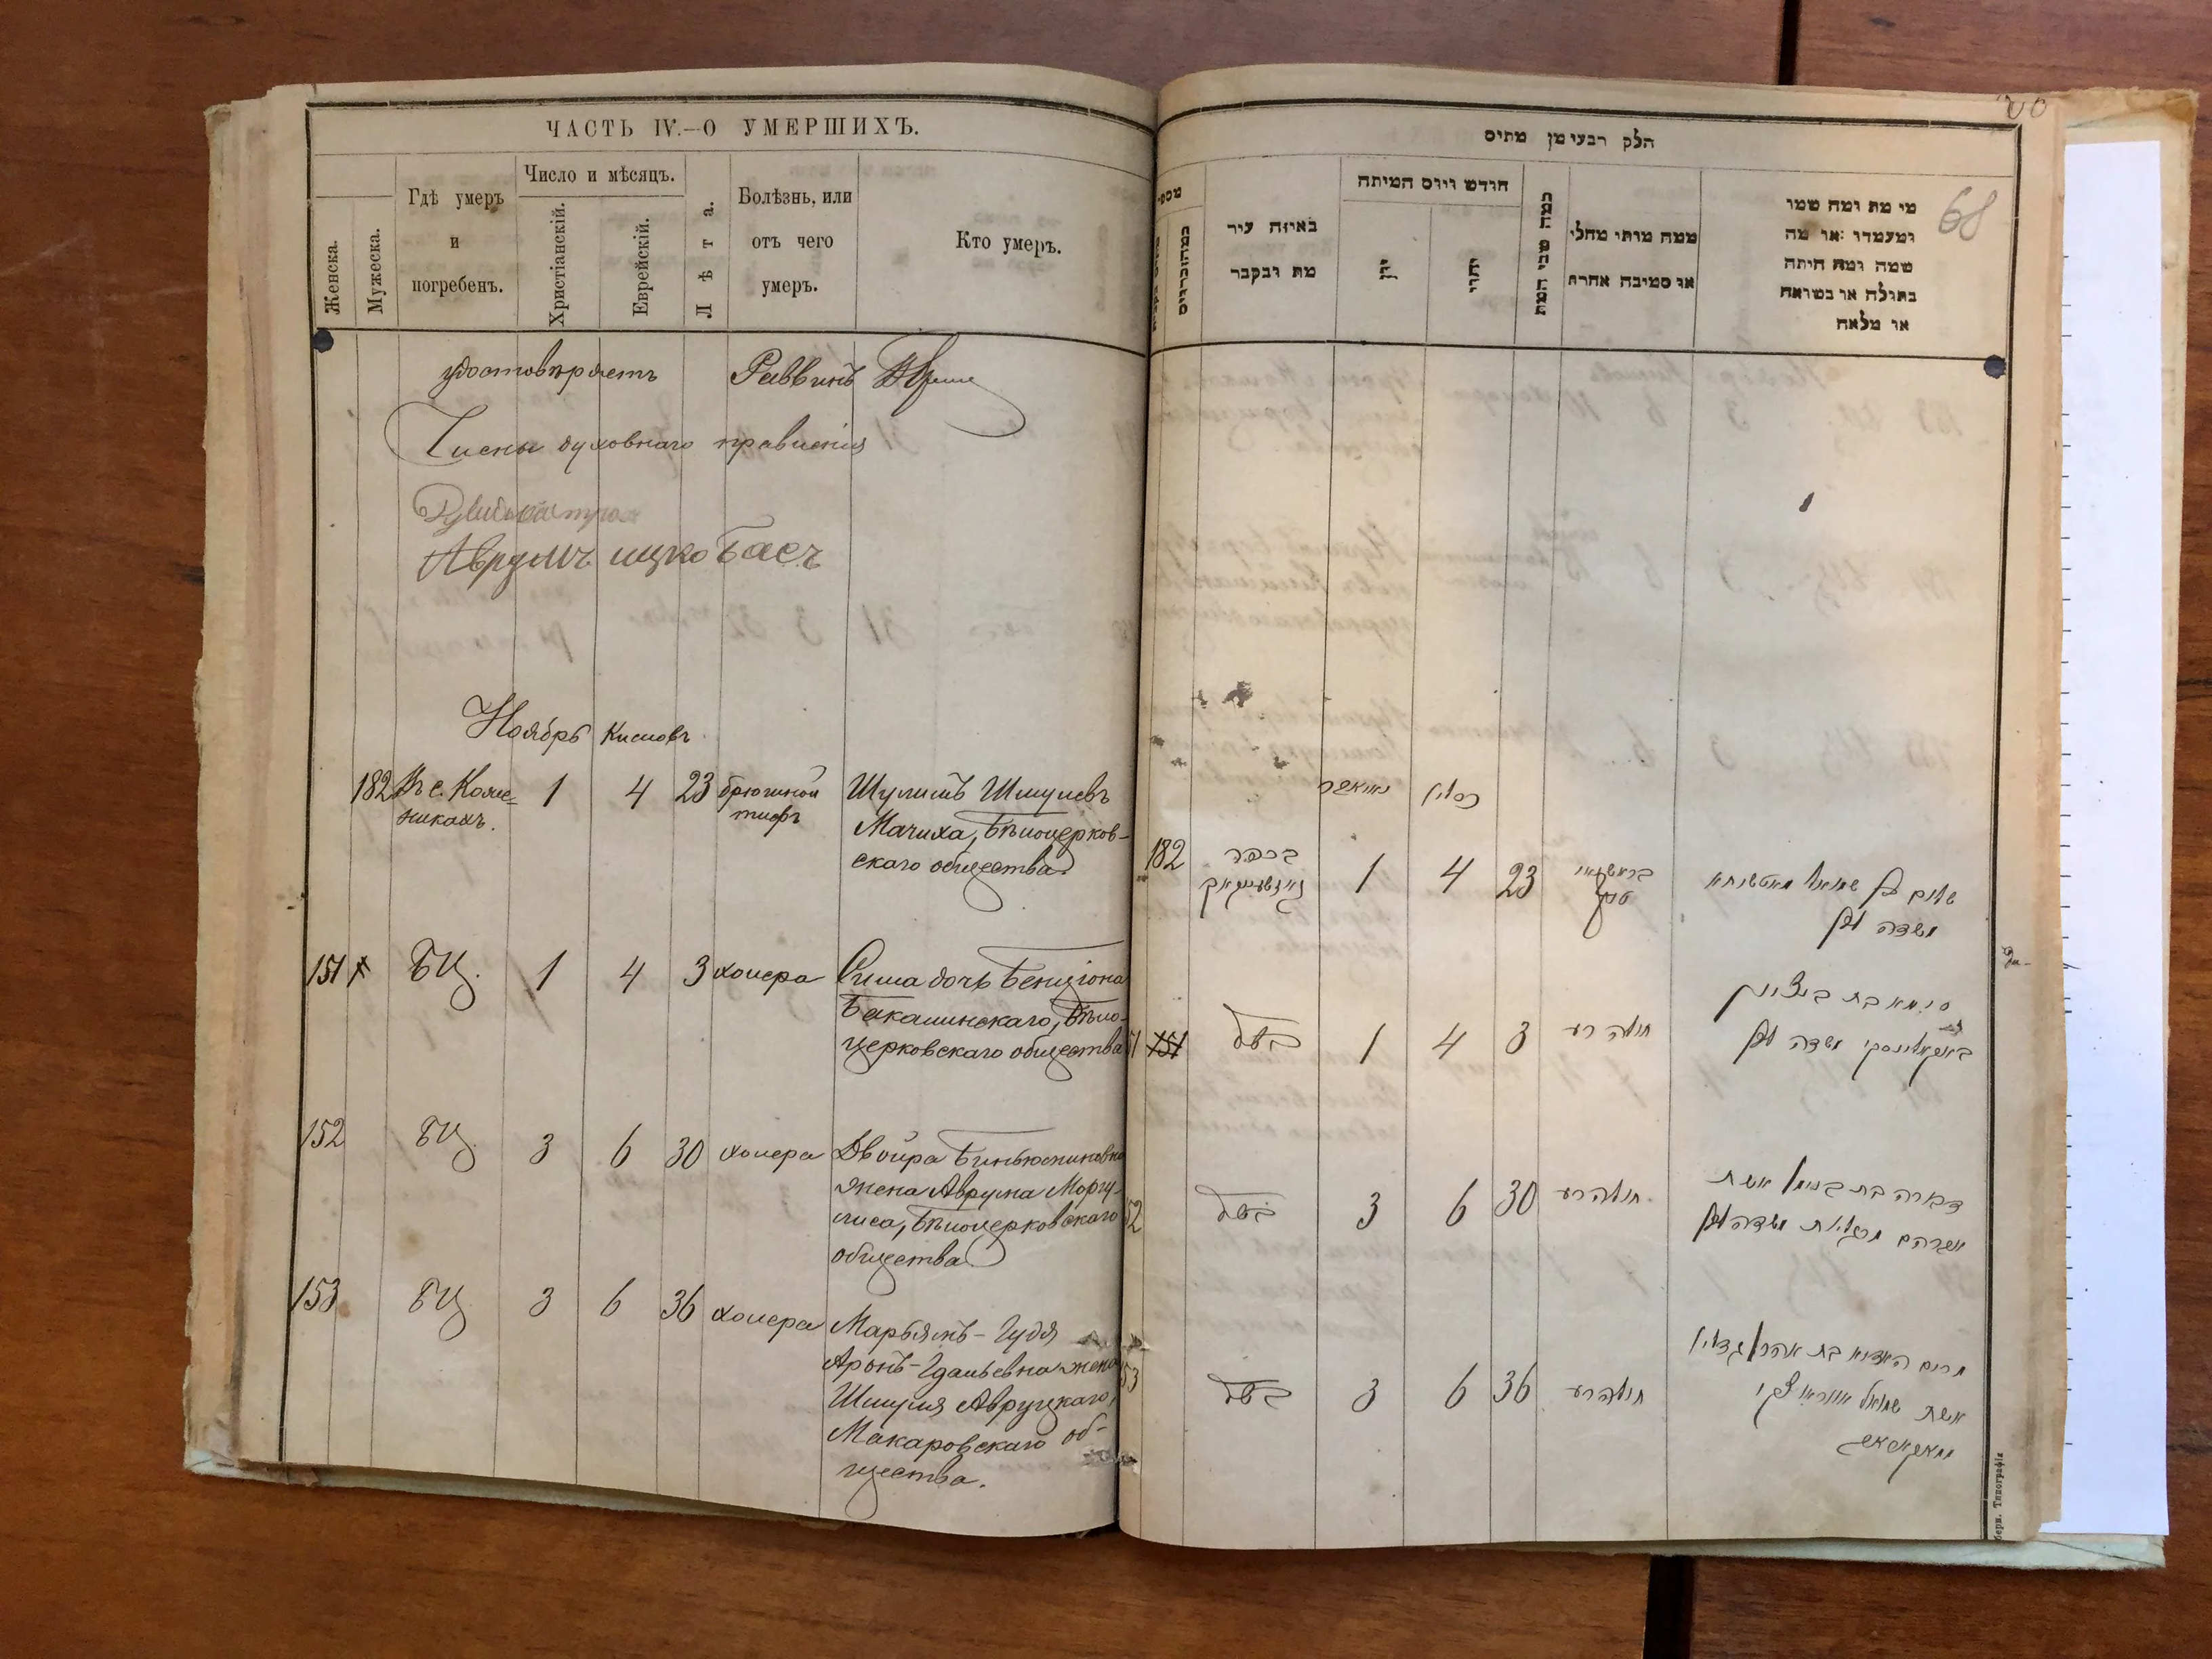 ЧАСТЬ IV.—О УМЕРШИХЪ.
Женска.
Мужеска.
Гдѣ умеръ
и
погребенъ.
Число и мѣсяцъ.
Христіанскій.
Еврейскій.
Лѣта.
Болѣзнь, или
отъ чего
умеръ.
Кто умеръ.
удостовѣряетъ Раввинъ
Члены духовнаго правленія
Аврумъ ицко Басъ
Ноябрь Кисловъ
182 Въ с. Коже-
никахъ. 1 4 23 брюшной
тифъ
Шулимъ Шмулевъ
Мачиха, Бѣлоцерков-
скаго общества
151 БЦ. 1 4 3 холера
Сима дочь Бенціона
Бакалинскаго, Бѣло-
церковскаго общества
152 БЦ. 3 6 30 холера
Двойра Биньюминовна
жена Аврума Моргу-
лиса, Бѣлоцерковскаго
общества
153 БЦ 3 6 36 холера
Марьямъ-Гудя
Аронъ-Гдальевна жена
Шмуля Авруцкаго,
Макаровскаго об-
щества.
חלק רבעי מן מתים
68
באיזה עיר
מת ונקבר
חודש ויום המיתה
יון
יהודי
כמה שני המת
ממה מותי מחלי
או סטיבה אחרת
מי מת ומה שמו
ומעמדו או מה
שמה ומה היתה
בתולה או בשואה
או מלאה
כסליו
182 בכפר 1 4 23
שלום בן שמואל מאטשוחא
משדה לבן
151 בשל 1 4 3 חולה רע
סימא בת בנציון
באקאלינסקי משדה לבן
52 בשל 3 6 30 חולה רע
דבורה בת בנימן אשת
אברהם מרגליות משדה לבן
53 בשל 3 6 36 חולה רע
מרים האדיא בת אהרן גדליו
אשת שמואל אווראצקי
מאקאראוו
берн. Типографія